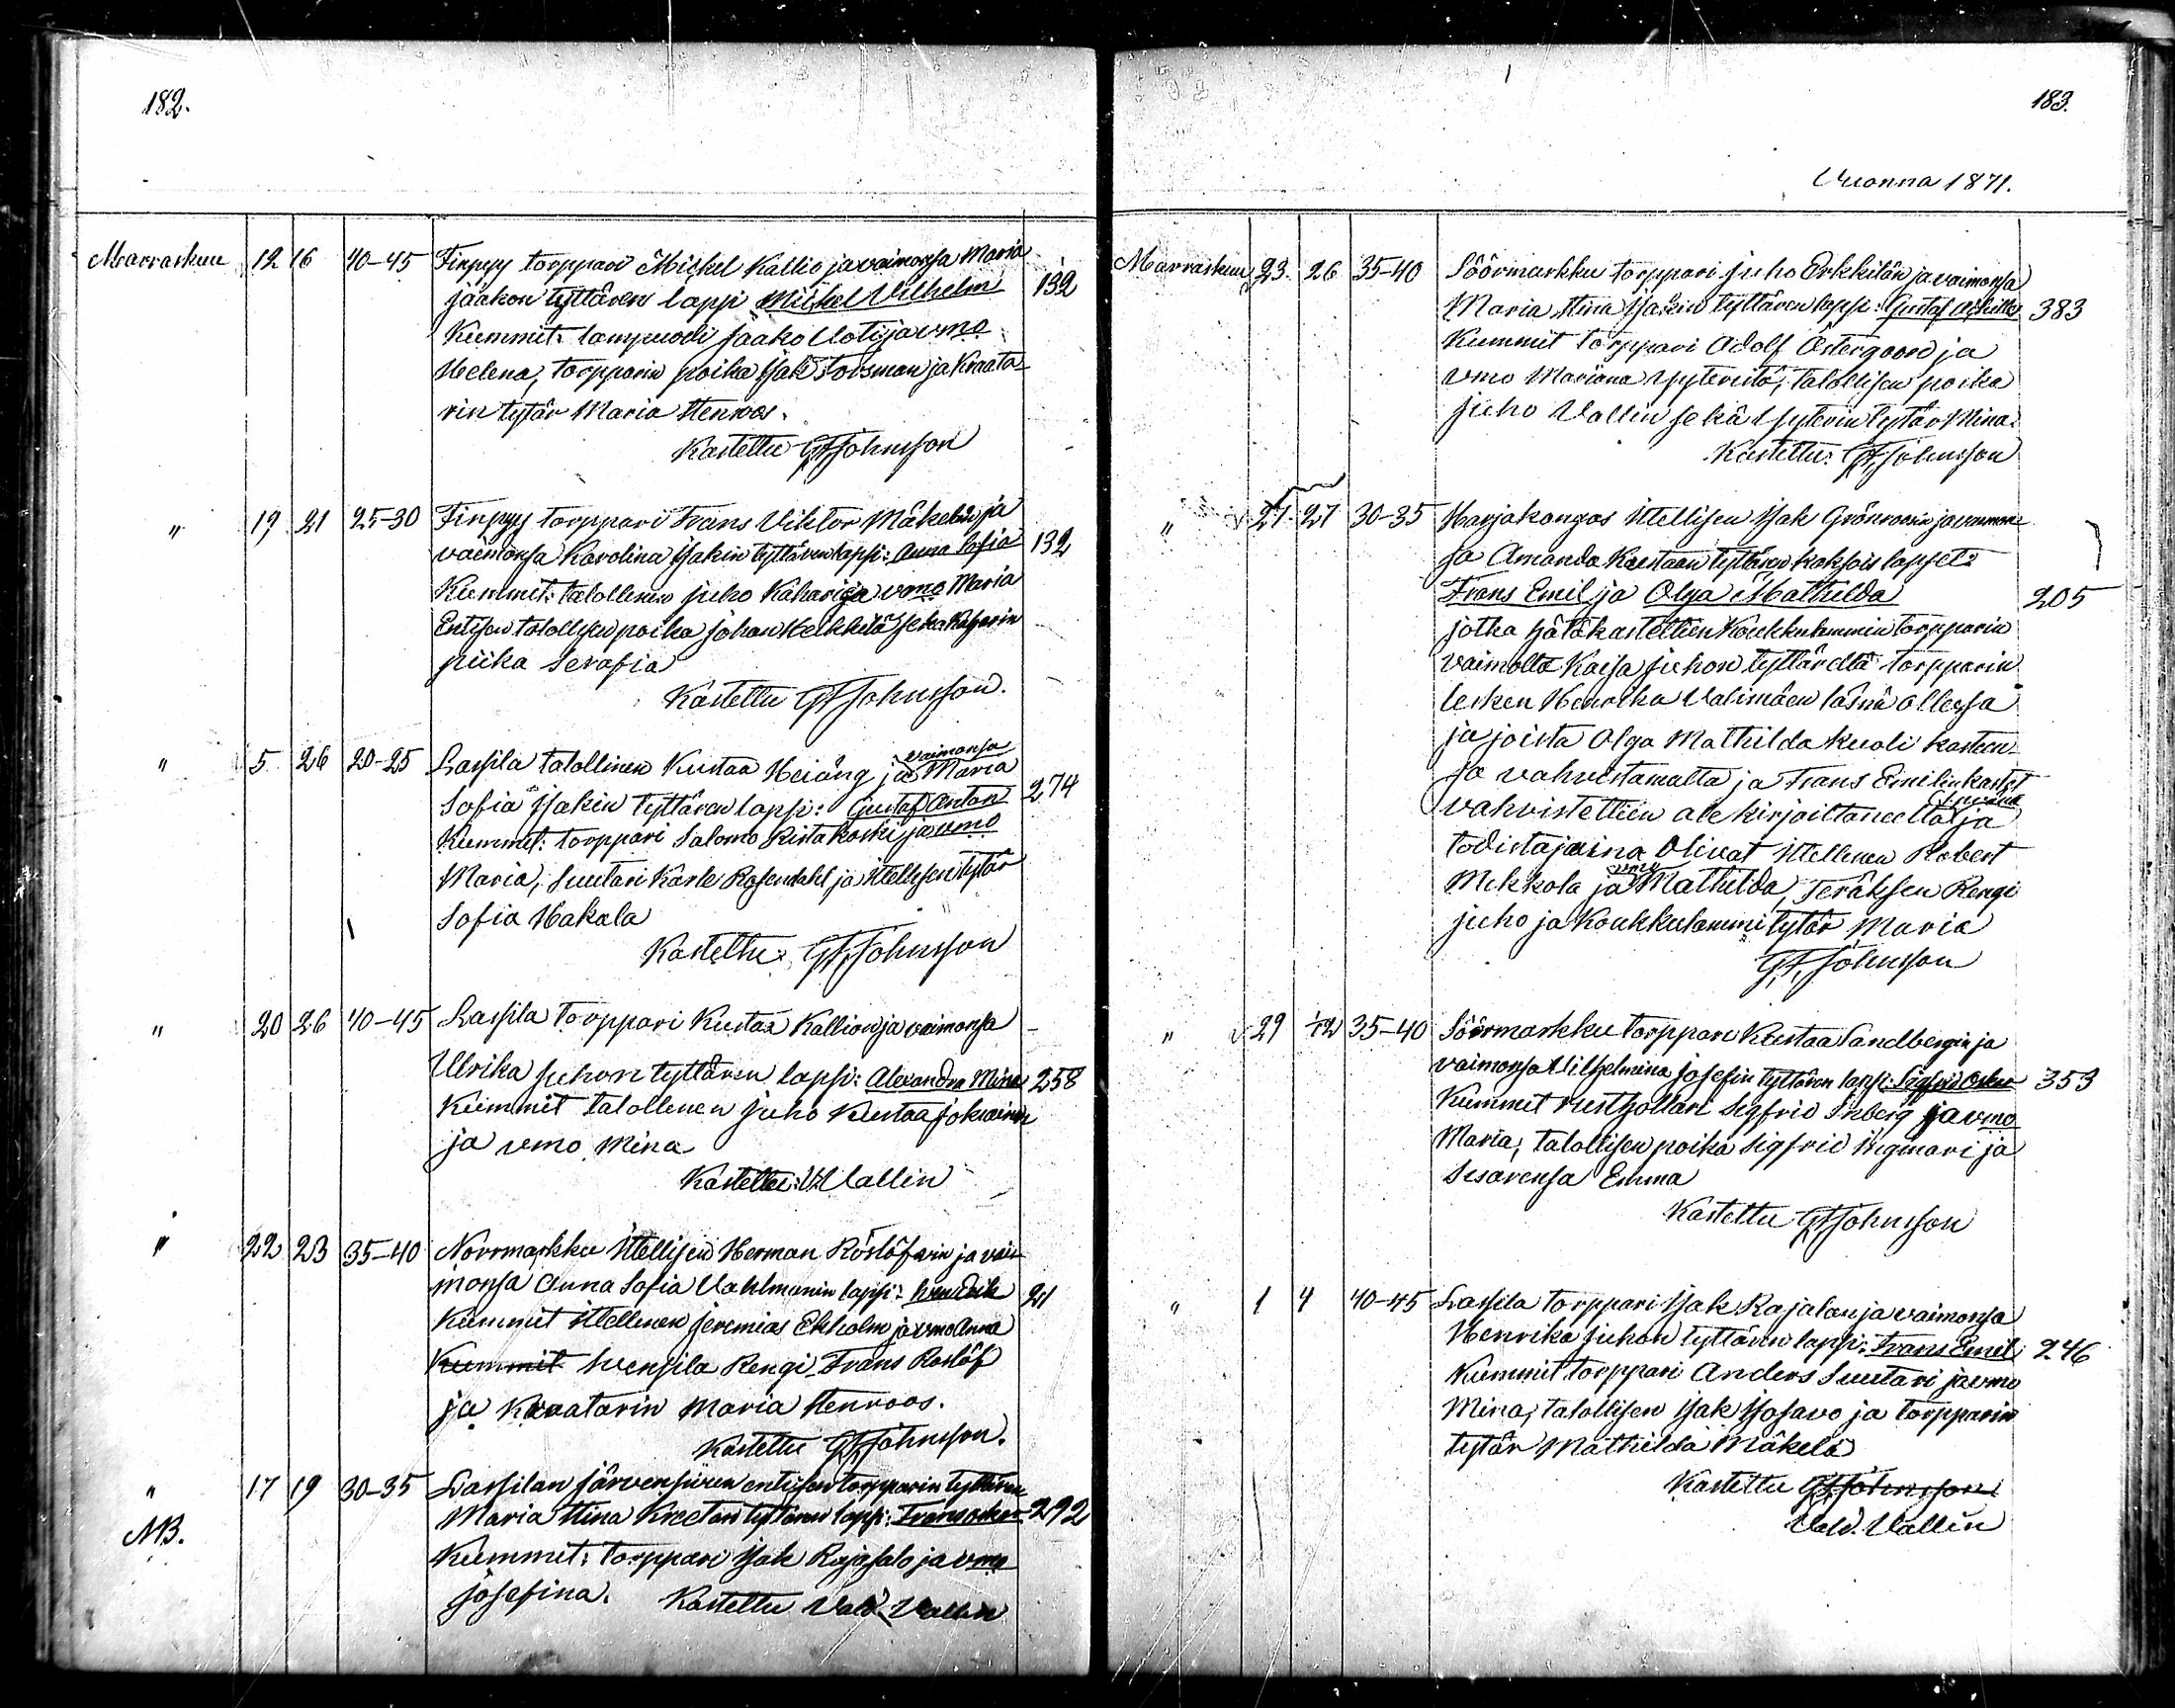 182.
Marraskuu 12 16 40-45 Finpyy torppari Mickel Kallio ja vaimonsa Maria
jaakon tyttären lapsi Mickel Vilhelm 132
Kummit: lampuodi Jaako Uoti ja vmo
Helena, torpparin poika Isak Forsman ja Kraata-
rin tytär Maria Stenroos.
Kastettu GFJohnsson
" 19 21 25-30 Finpyy torppari Frans Viktor Mäkelän ja
vaimonsa Karolina Isakin tyttären lapsi: Anna Sofia 132
Kummit: talollinen Juho Kahari ja vmo Maria
Entisen talollisen poika Johan Heikkilä seka
piika Serafia
Kastettu GFJohnsson.
" 5 26 20-25 Lassila talollinen Kustaa Heiäng ja vaimonsa Maria
Sofia Isakin tyttären lapsi: Gustaf Anton 274
Kummit: torppari Salomo Ristakoski ja vmo
Maria, Suutari Karle Rosendahl ja Itellisen tytär
Sofia Hakala
Kastettu: GFJohnsson
" 20 26 40-45 Lassila torppari Kustaa Kallion ja vaimonsa
Ulrika Juhon tyttären lapsi: Alexandra Mina 258
Kummit talollinen Juho Kustaa Joksainen
ja vmo Mina
Kastettu: V. Vallin
" 22 23 35-40 Norrmarkku Itellisen Herman Röslöfwin ja vai-
monsa Anna Sofia Vahlmanin lapsi: 21
Kummit Itellinen Jeremias Ekholm ja vmo Anna
Kummit Svensila Rengi Frans Roslöf
ja Kraatarin Maria Stenroos.
Kastettu GFJohnsson.
" 17 19 30-35 Lassilan Järvensuun entisen torpparin tyttären
NB. Maria Stina Kreetan tyttären lapsi: Frans Oskar 292
Kummit: torppari Isak Rajasalo ja vmo
Josefina. Kastettu Vald. Vallin
183.
Vuonna 1871.
Marraskuu 23. 26 35-40 Söörmarkku torppari Juho Erkkilän ja vaimonsa
Maria Stina Isakin tyttären lapsi: Gustaf Achilles 383
Kummit torppari Adolf Östergoord ja
vmo Mariana Yyteristä, talollisen poika
Juho Vallin sekä Yyterin tytär Mina.
Kastettu: GFJohnsson
" 21. 27 30-35 Harjakangas Itellisen Isak Grönroosin ja vaimon-
sa Amanda Kustaan tyttären kaksois lapset:
Frans Emil ja Olga Mathilda 205
jotka hätäkastettiin Koukkulammin torpparin
vaimolta Kaisa Juhon tyttäreltä torpparin
lesken Henrika Valimäen läsnä ollessa
ja joista Olga Mathilda kuoli kasteen
ja vahvistamatta ja Frans Emilin kastet
vahvistettiin alekirjoittaneelta ja
todistajaina olivat Itellinen Robert
Mikkola ja vmo Mathilda, Teräksen Rengi
Juho ja Koukkulammi tytär Maria
GFJohnsson
" 29 1/12 35-40 Söörmarkku torppari Kustaa Sandbergin ja
vaimonsa Vilhelmina Josefin tyttären lapsi: Sigfrid Oskar 353
Kummit rusthollari Sigfrid Inberg ja vmo
Maria; talollisen poika Sigfrid Ingmari ja
Sisarensa Emma
Kastettu GFJohnsson
" 1 4 40-45 Lassila torppari Isak Rajalan ja vaimonsa
Henrika Juhon tyttären lapsi: Frans Emil 246
Kummit torppari Anders Suutari ja vmo
Mina, talollisen Isak Isosavo ja torpparin
tytär Mathilda Mäkelä
Kastettu GFJohnsson
Vald. Vallin